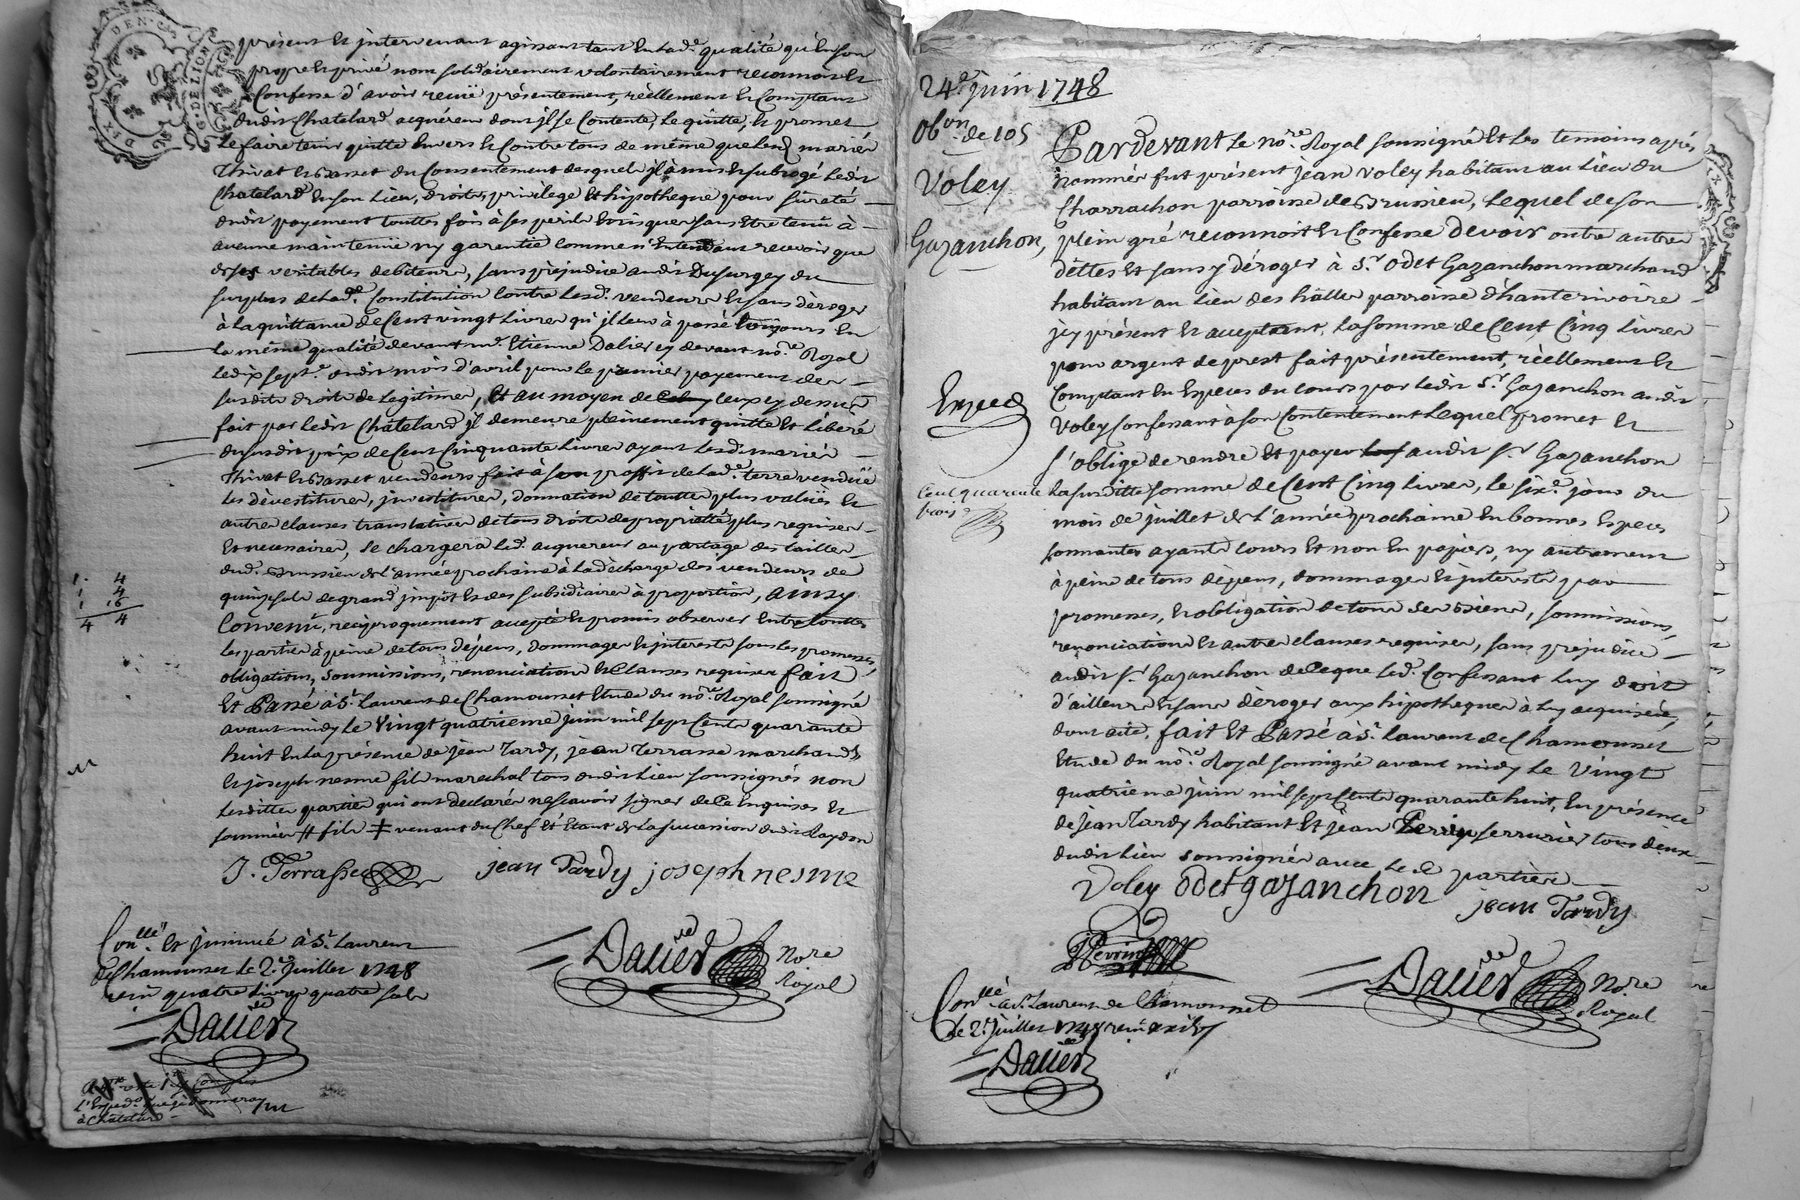 DIX DEN.
G. DE LION
présent et intervenant agissant tant en lad.e qualité qu'en son
propre et privé nom solidairement volontairement reconnoit et
Confesse d'avoir reçeu présentement, réellement et Comptant
dudit Chatelard acquereur dont jl se Contente, Le quitte, et promet
Le faire tenir quitte Envers et Contre tous de même que lesd. mariés
Thivat et Basset du Consentement desquel jl à mis et subrogé Ledit
Chatelard En son Lieu, droits, privilege et hipotheque pour sureté
dudit payement touttes fois à ses perils et risques sans Etre tenu à
aucune maintenüe ny garentie Comme n'Entendant recevoir que
de ses veritables debiteurs, sans préjudice audit Dusurgey du
surplus de lad.e Constitution Contre Lesd. vendeurs et sans dèroger
à la quittance de Cent vingt Livres qu'jl leur à passé toujours En
la même qualité devant m.e Etienne Dalier cy devant no.re Royal
Le dix sept.e dudit mois d'avril pour Le premier payement des
susdits droits de Legitimes, Et au moyen de Ceux cy dessus
fait par Ledit Chatelard jl demeure pleinement quitte Et Libéré
du susdit prix de Cent Cinquante Livres ayant Lesd. mariés
Thivat et Basset vendeurs fait à son proffit de lad.e terre vendüe
les dévestitures, jnvestitures, donnation de toutte plus valüe et
autres clauses translatives de tous droits de proprietté plus requises
et necessaires, se chargera led. acquereur au partage des tailles
dud. Brussieu de l'année prochaine à la décharge des vendeurs de
quinze sols de grand jmpôt et des subsidiaires à proportion, ainsy
Convenu, reciproquement accepté et promis observer Entre touttes
les parties à peine de tous dépens, dommages et interests sous les promesses,
obligations, soumissions, renonciations et Clauses requises fait
Et Passé à St. Laurent de Chamousset Etude du no.re Royal soussigné
avant midy le Vingt quatrieme juin mil sept Cents quarante
huit En la présence de jean Tardy, jean Terrasse marchands
et joseph nesme fils marechal tous dudit Lieu soussignés non
lesdittes parties qui ont declarés ne sçavoir signer de Ce Enquises et
sommées # fils ‡ venant du Chef et Etant de la succession dudit Raydon
1. 4
1 4
1 16
4 4
J. Terrasse jean Tardy joseph nesme
Con.llé et jnsinué à St. Laurent
de Chamousset Le 2.e juillet 1748
reçu quatre Livres quatre sols
Dalier
Dalier No.re
Royal
à Chatelard
24.e juin 1748
Ob.on de 105
Voley
Gazanchon,
Pardevant Le no.re Royal soussigné Et Les temoins après
nommés fut présent jean Voley habitant au Lieu du
Charrachon parroisse de Brussieu, Lequel de son
plein gré reconnoit et Confesse devoir outre autres
dettes et sans y déroger à S.r Odet Gazanchon marchand
habitant au Lieu des halles parroisse d'hauterivoire
jcy présent et acceptant, La somme de Cent Cinq Livres
pour argent de prest fait présentement, réellement et
Comptant En Especes du cours par ledit S.r Gazanchon audit
Voley Confessant à son Contentement Lequel promet et
s'oblige de rendre et payer audit S.r Gazanchon
La susditte somme de Cent Cinq Livres, le six.e jour du
mois de juillet de l'année prochaine En bonnes Especes
sonnantes ayants cours Et non En papiers, ny autrement
à peine de tous dépens, dommages et interests par
promesses, et obligation de tous ses Biens, soumissions,
renonciations et autres clauses requises, sans prejudice
audit S.r Gazanchon de Ceque led. Confessant Luy doit
d'ailleurs et sans dèroger aux hipotheques à luy acquises,
dont acte, fait Et Passé à St. Laurent de Chamousset
Etude du no.re Royal soussigné avant midy Le Vingt
quatrieme juin mil sept Cents quarante huit, En présence
de jean Tardy habitant et jean Perrin serrurier tous deux
dudit Lieu soussignés avec Les d. parties
Exped
Cent quarante
trois
Voley odet gazanchon
jean Tardy
JPerrin
Con.llé à St. Laurent de Chamousset
le 2.e juillet 1748 reçu
Dalier
Dalier No.re
Royal